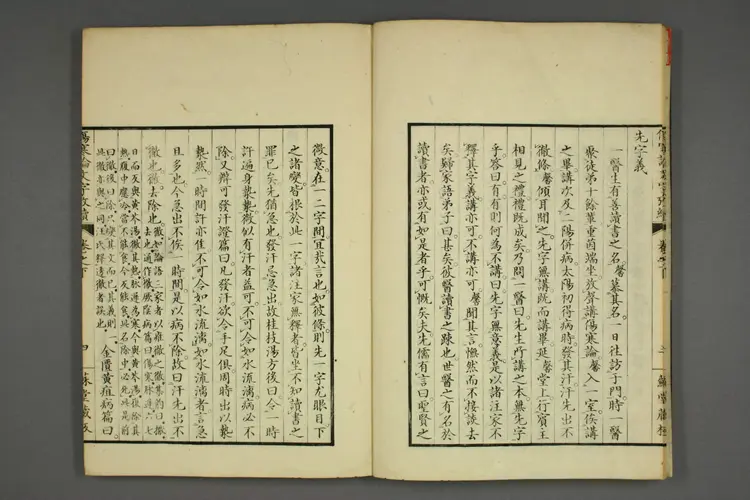 先字義
一醫生有善讀書之名。馨慕其名。一日往訪于門。時一醫
聚徒弟十餘輩重茵端坐放聲講傷寒論。馨入一室俟講
之畢講次及二陽併病太陽初得病時。發其汗汗先出不
徹條。馨傾耳聞之。先字無講既而講畢延馨堂上行賓主
相見之禮禮既成矣。乃問一醫曰先生所講之本無先字
乎。答曰有有則何爲不講曰先字無意義。是以諸注家不
釋其字義講亦可不講亦可。馨聞其言憮然而不接談去
矣歸家語弟子曰甚矣彼醫讀書之踈也世醫之有名於
讀書者亦或有如是者乎可慨矣夫先儒有言曰聖賢之
微意。在一二字間。宜哉言也。如彼條則先一字尤眼目下
之諸變皆根於此一字諸注家無釋者皆坐不知讀書之
罪已矣先猶急也發汗忌急出故桂枝湯方後曰令一時
許遍身漐漐微似有汗者益可不可令如水流漓病必不
除。又辨可發汗證篇曰凡發汗欲令手足俱周時出以漐
漐然一時間許亦佳不可令如水流漓。如水流漓者言急
且多也。今急出不俟一時間是以病不除。故曰汗先出不
徹也徹去除也
金匱黃疸病篇曰
傷寒論文字攷續 卷之下 四